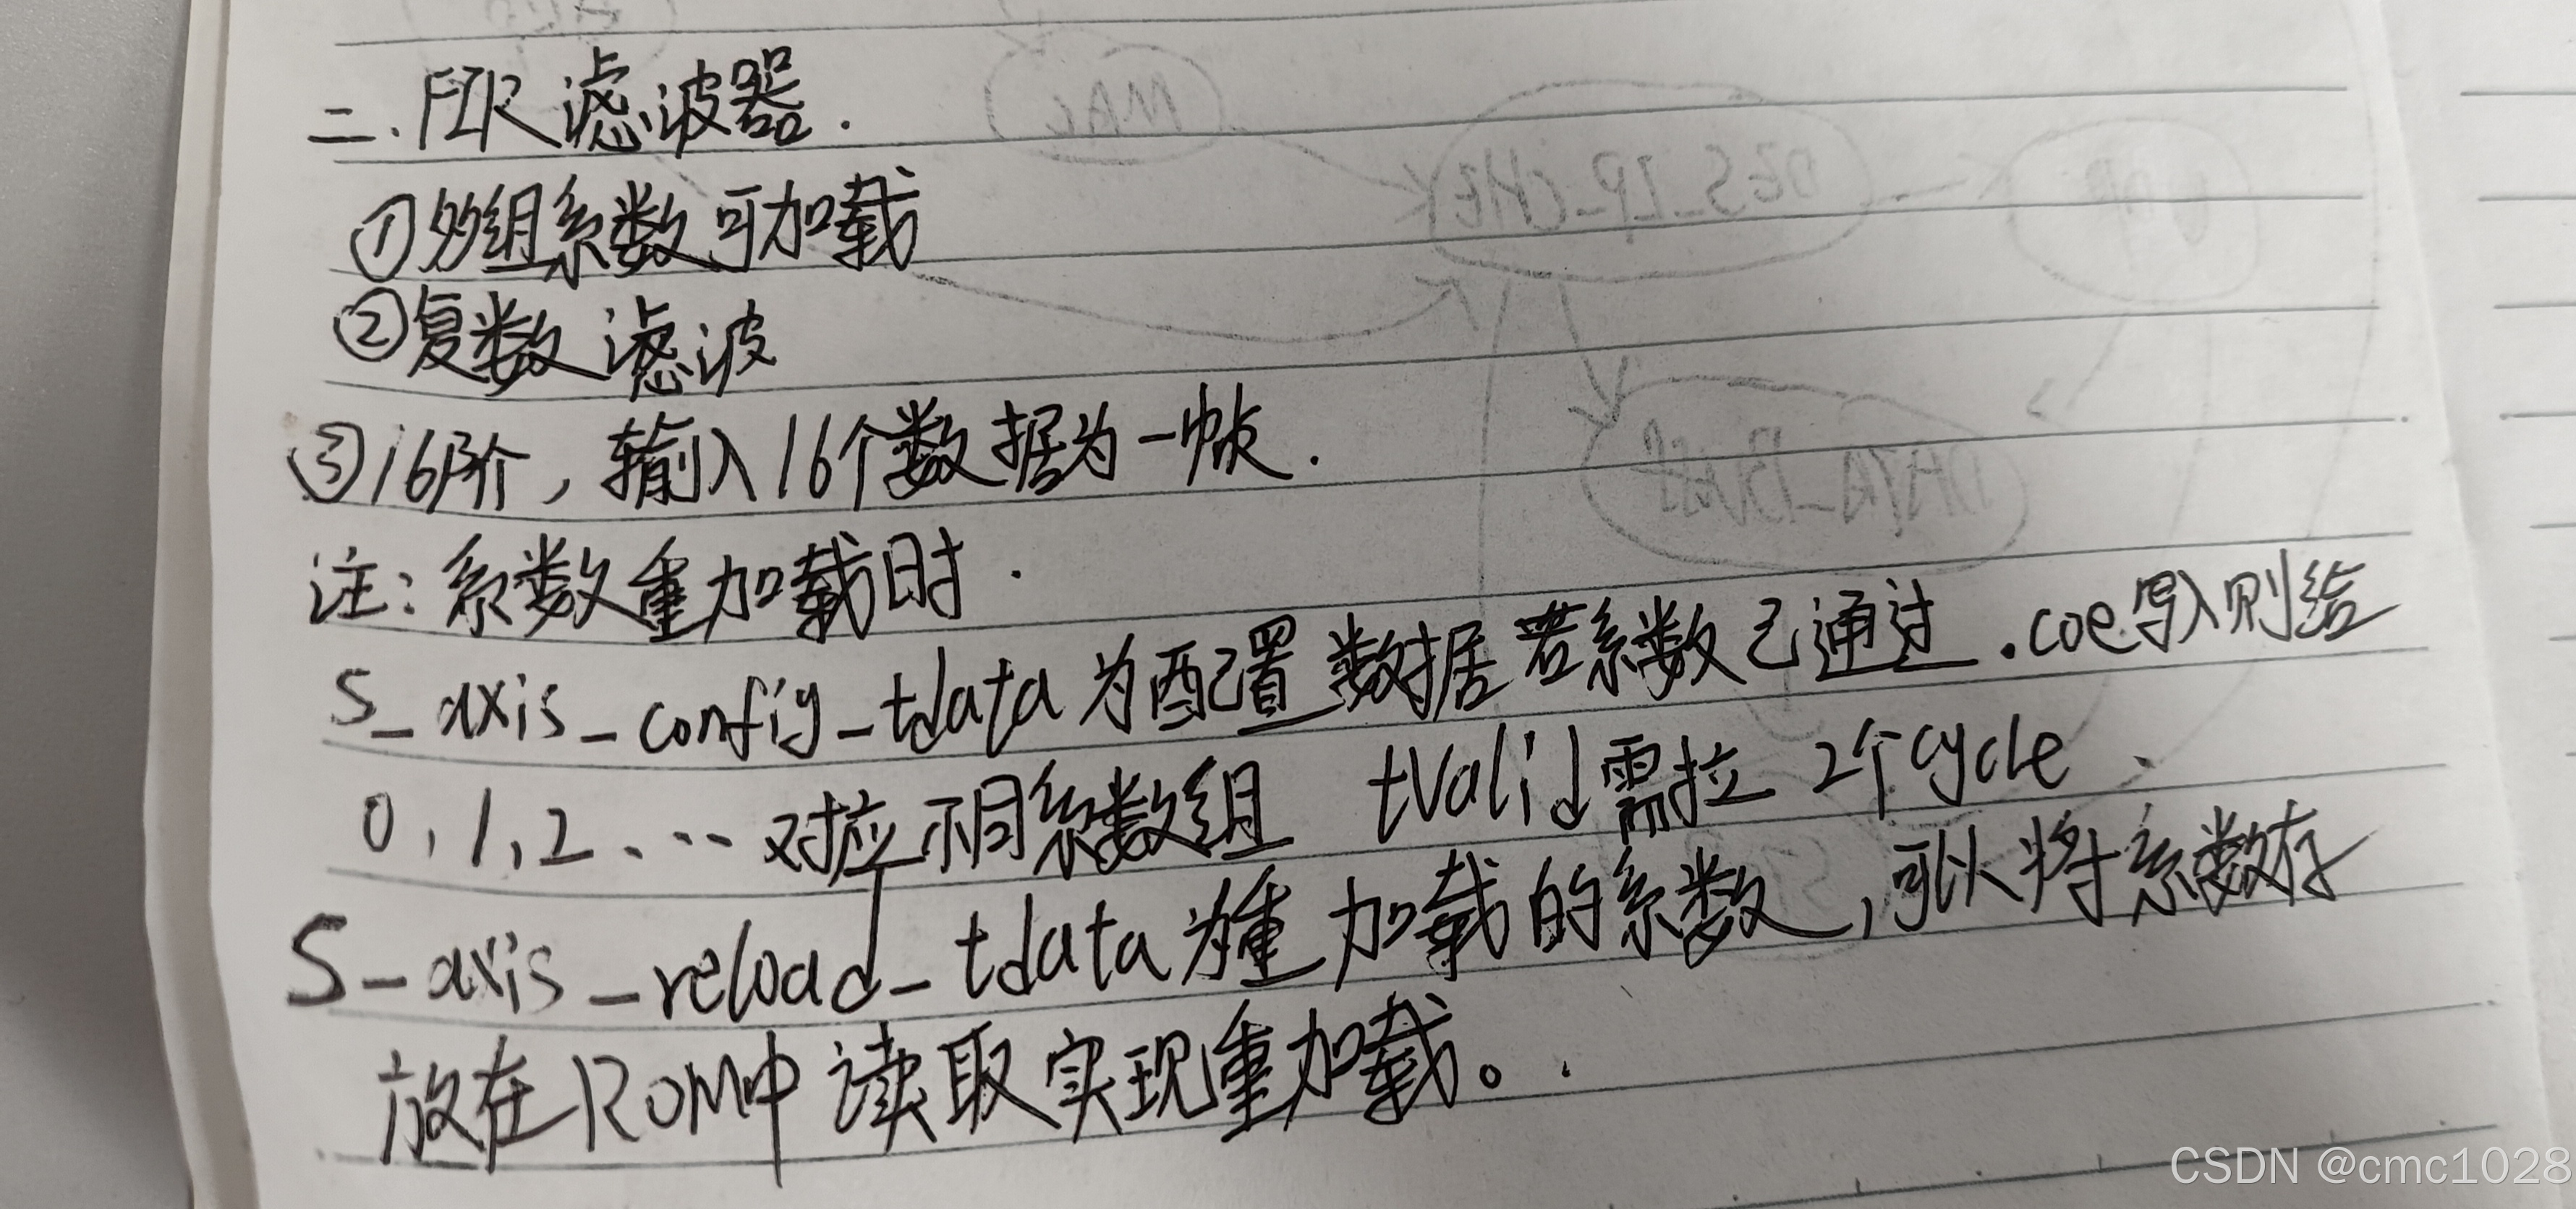 二. FIR 滤波器.
①多组系数可加载
②复数滤波
③16阶，输入16个数据为一帧.
注：系数重加载时.
S_axis_config_tdata为配置数据若系数已通过.coe写入则给
0,1,2、…对应不同系数组 tvalid需拉2个cycle、
S_axis_reload_tdata为重加载的系数，可以将系数存
放在ROM中读取实现重加载。.
MAC
DES_IP_CHEK
DATA_BUFF
CSDN @cmc1028